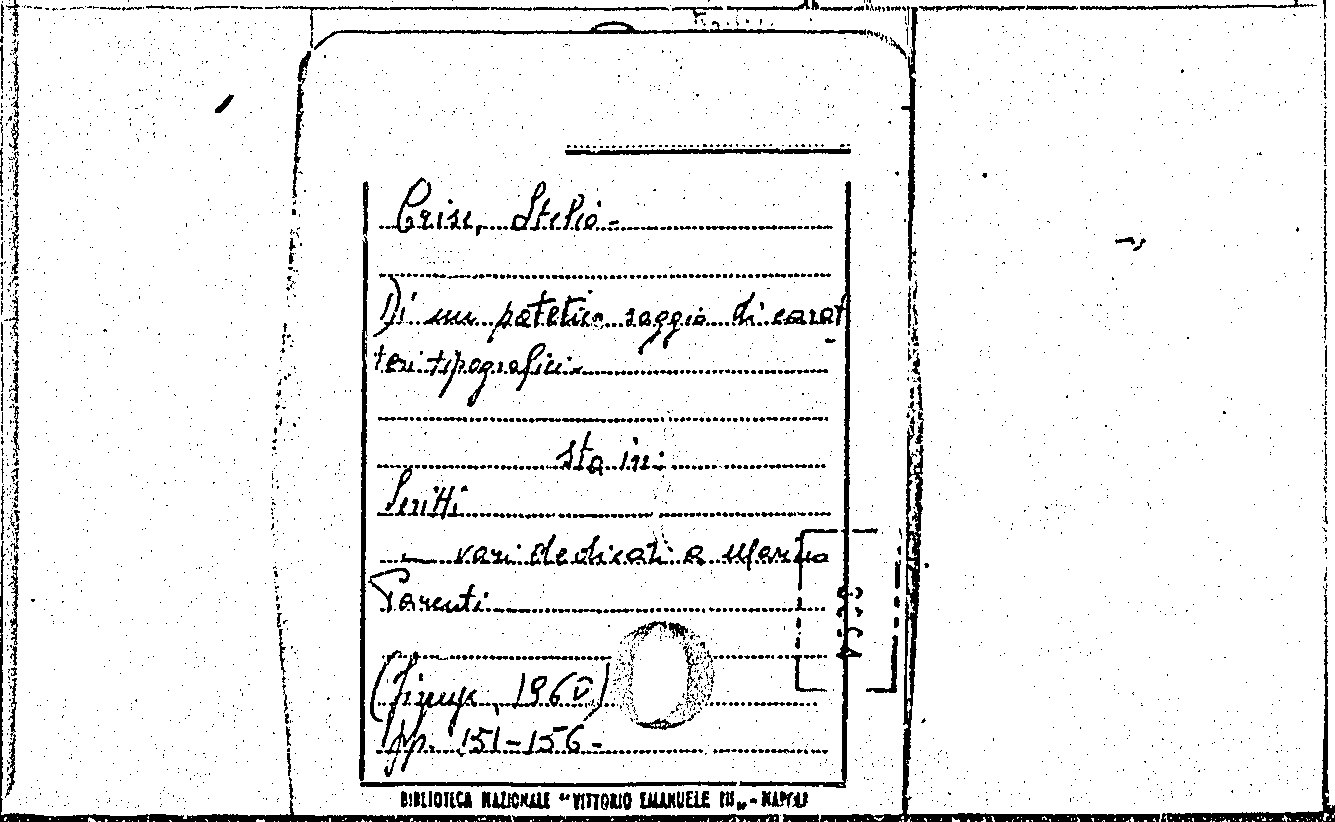 Crise, Stelio -
Di un patetico saggio di carat
teri tipografici -
sta in:
Scritti
— vari dedicati a Marino
Parenti
(Firenze, 1960)
pp. 151-156 -
BIBLIOTECA NAZIONALE "VITTORIO EMANUELE III" - NAPOLI